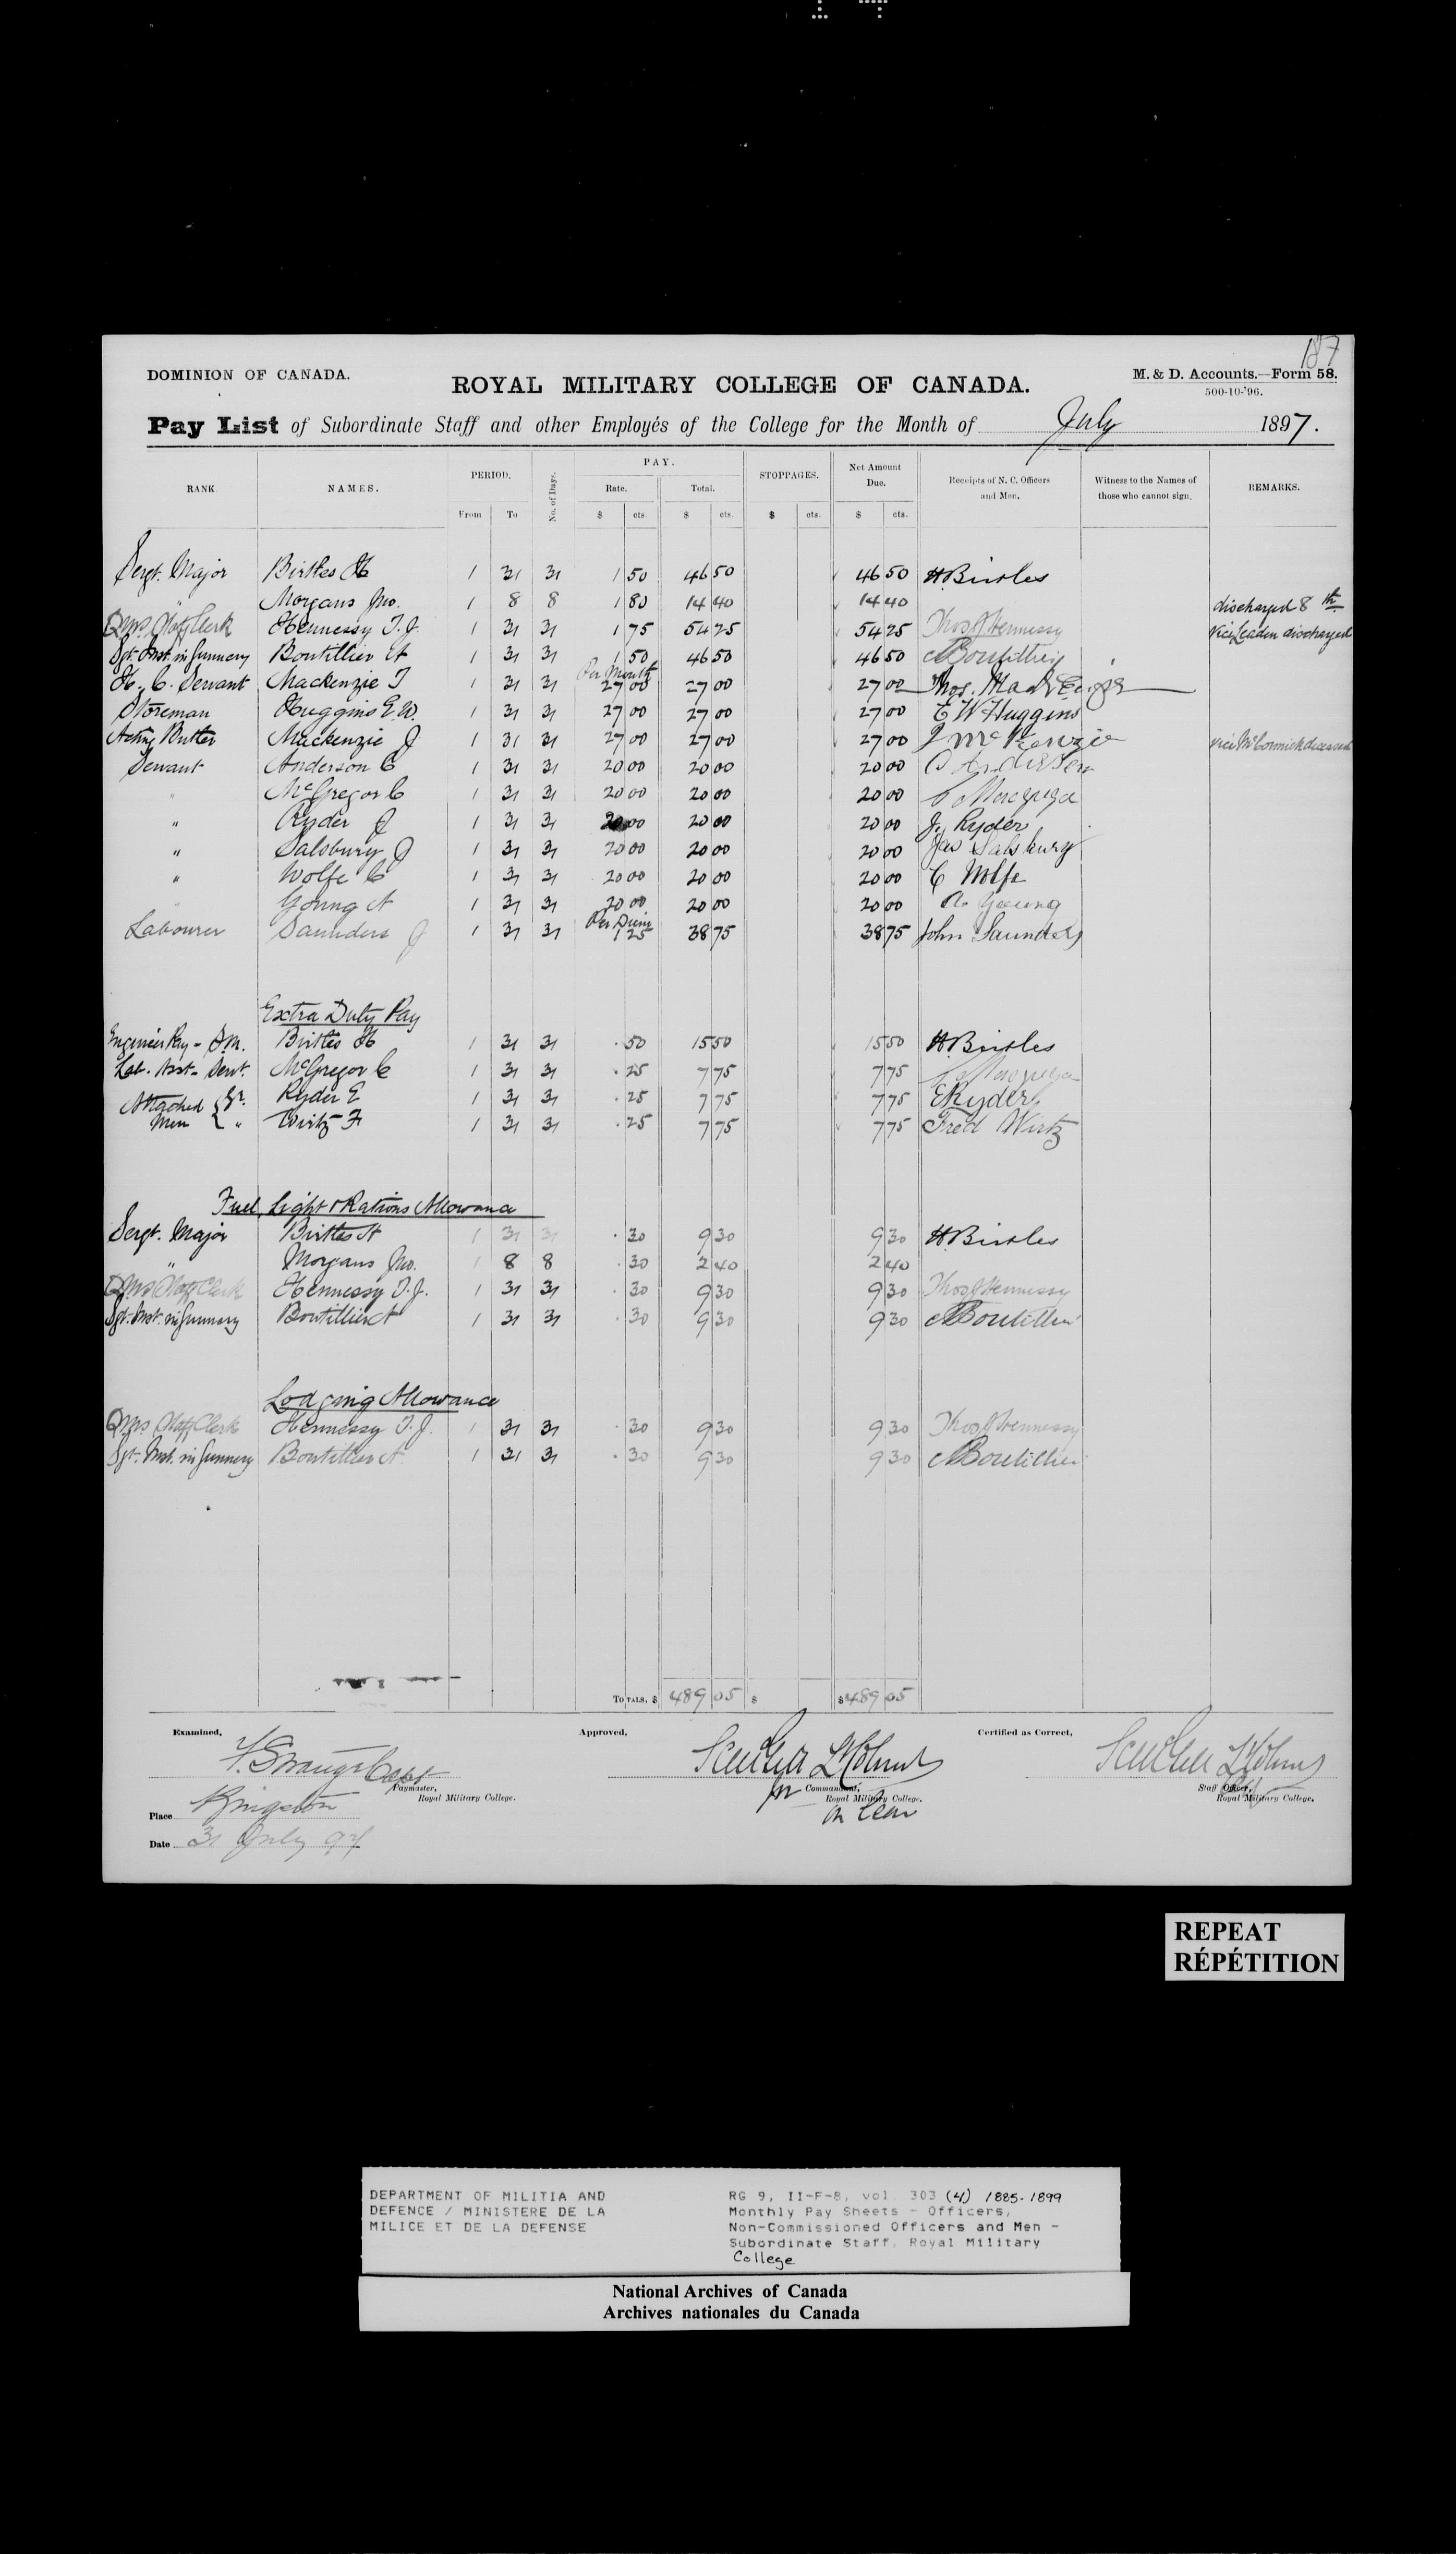 187
DOMINION OF CANADA.
M. & D. Accounts.—Form 58.
500-10-'96.
ROYAL MILITARY COLLEGE OF CANADA.
Pay List of Subordinate Staff and other Employés of the College for the Month of July 1897.
RANK. NAMES. PERIOD. From To No. of Days. PAY. Rate. $ cts. Total. $ cts. STOPPAGES. $ cts. Net Amount Due. $ cts. Receipts of N. C. Officers and Men. Witness to the Names of those who cannot sign. REMARKS.
Sergt. Major Birtles H 1 31 31 1 50 46 50 46 50 H Birtles
" Morgans Jno. 1 8 8 1 80 14 40 14 40 discharged 8th
QMS Staff Clerk Hennessy T. J. 1 31 31 1 75 54 25 54 25 Thos J Hennessy Vice Leaden discharged
Sgt. Inst. in Gunnery Boutillier A 1 31 31 1 50 46 50 46 50 A Boutillier
Per Month
H. C. Servant Mackenzie T 1 31 31 27 00 27 00 27 00 Thos. MacKenzie
Storeman Huggins E. W. 1 31 31 27 00 27 00 27 00 E W Huggins
Acting Butler Mackenzie J 1 31 31 27 00 27 00 27 00 J McKenzie vice McCormick deceased
Servant Anderson C 1 31 31 20 00 20 00 20 00 C Andersen
" McGregor C 1 31 31 20 00 20 00 20 00 C Macgregor
" Ryder J 1 31 31 20 00 20 00 20 00 J. Ryder
" Salsbury J 1 31 31 20 00 20 00 20 00 Jas Salsbury
" Wolfe C 1 31 31 20 00 20 00 20 00 C Wolfe
" Young A 1 31 31 20 00 20 00 20 00 A. Young
Per Diem
Labourer Saunders J 1 31 31 1 25 38 75 38 75 John Saunders
Extra Duty Pay
Engineer Pay - S.M. Birtles H 1 31 31 . 50 15 50 15 50 H Birtles
Lab. Asst. - Servt. McGregor C 1 31 31 . 25 7 75 7 75 C Macgregor
Attached Men { Gr. Ryder E 1 31 31 . 25 7 75 7 75 E Ryder
" Wirtz F 1 31 31 . 25 7 75 7 75 Fred Wirtz
Fuel, Light & Rations Allowance
Sergt. Major Birtles H 1 31 31 . 30 9 30 9 30 H Birtles
" Morgans Jno. 1 8 8 . 30 2 40 2 40
QMS Staff Clerk Hennessy T. J. 1 31 31 . 30 9 30 9 30 Thos J Hennessy
Sgt. Inst. in Gunnery Boutillier A 1 31 31 . 30 9 30 9 30 A Boutillier
Lodging Allowance
QMS Staff Clerk Hennessy T. J. 1 31 31 . 30 9 30 9 30 Thos J Hennessy
Sgt. Inst. in Gunnery Boutillier A 1 31 31 . 30 9 30 9 30 A Boutillier
TOTALS, $ 489 05 $ $ 489 05
Examined, Approved, Certified as Correct,
Capt
Paymaster, Royal Military College.
for Commandant, Royal Military College.
on leave
Staff Officer, Royal Military College.
Place Kingston
Date 31 July 97
REPEAT
RÉPÉTITION
DEPARTMENT OF MILITIA AND
DEFENCE / MINISTERE DE LA
MILICE ET DE LA DEFENSE
RG 9, II-F-8, vol. 303 (4) 1885-1899
Monthly Pay Sheets - Officers,
Non-Commissioned Officers and Men -
Subordinate Staff, Royal Military
College
National Archives of Canada
Archives nationales du Canada